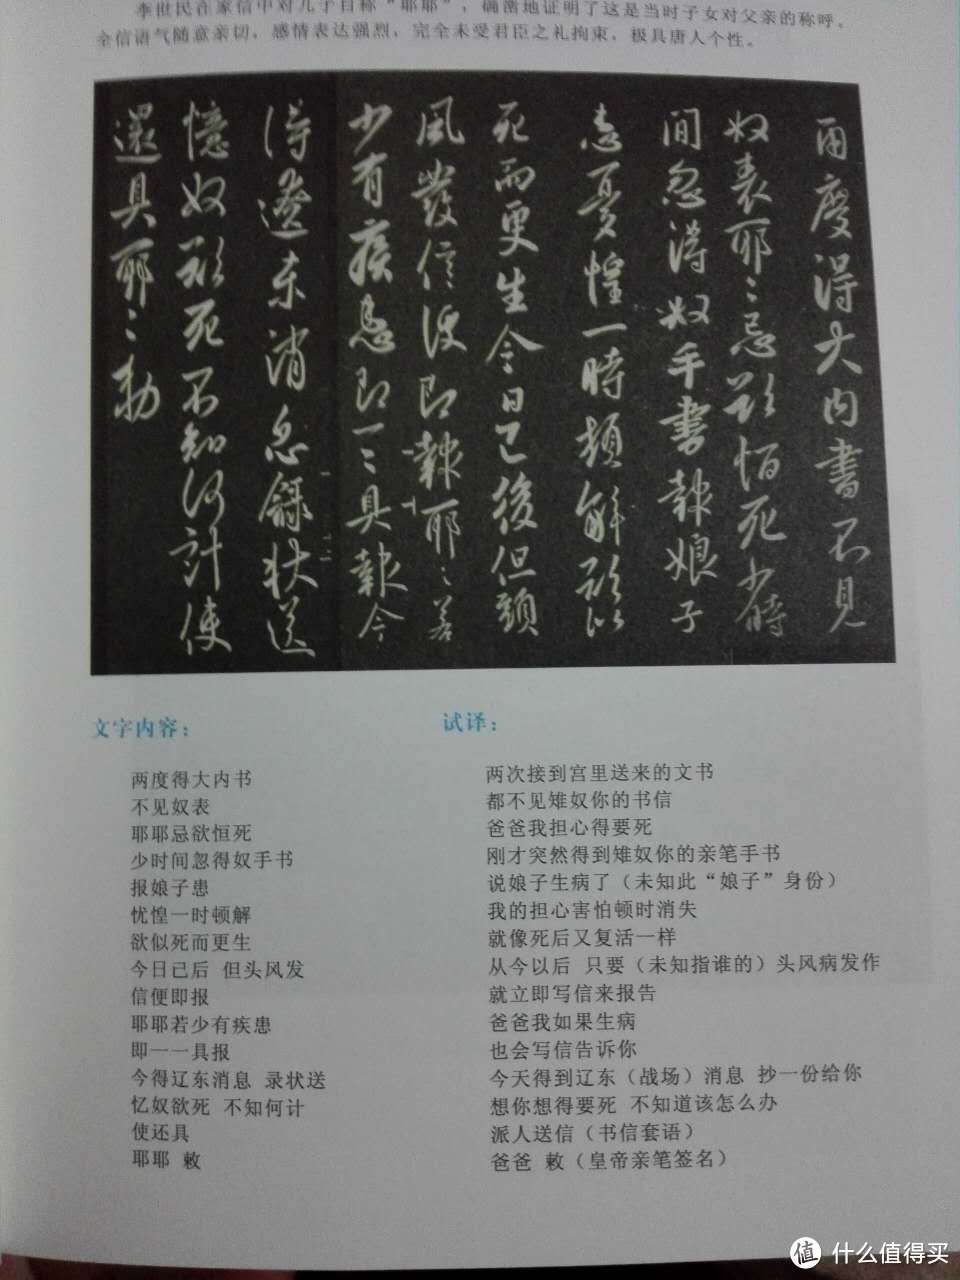 李世民在家信中对儿子自称“耶耶”，确凿地证明了这是当时子女对父亲的称呼。
全信语气随意亲切，感情表达强烈，完全未受君臣之礼拘束，极具唐人个性。
兩度得大内書不見
奴表耶〻忌欲恒死少時
間忽得奴手書報娘子
患憂惶一時頓解欲似
死而更生今日已後但頭
風發信便即報耶〻若
少有疾患即一〻具報今
得遼東消息錄狀送
憶奴欲死不知何計使
還具耶〻勅
文字内容：
两度得大内书
不见奴表
耶耶忌欲恒死
少时间忽得奴手书
报娘子患
忧惶一时顿解
欲似死而更生
今日已后 但头风发
信便即报
耶耶若少有疾患
即一一具报
今得辽东消息 录状送
忆奴欲死 不知何计
使还具
耶耶 敕
试译：
两次接到宫里送来的文书
都不见雉奴你的书信
爸爸我担心得要死
刚才突然得到雉奴你的亲笔手书
说娘子生病了（未知此“娘子”身份）
我的担心害怕顿时消失
就像死后又复活一样
从今以后 只要（未知指谁的）头风病发作
就立即写信来报告
爸爸我如果生病
也会写信告诉你
今天得到辽东（战场）消息 抄一份给你
想你想得要死 不知道该怎么办
派人送信（书信套语）
爸爸 敕（皇帝亲笔签名）
值 什么值得买